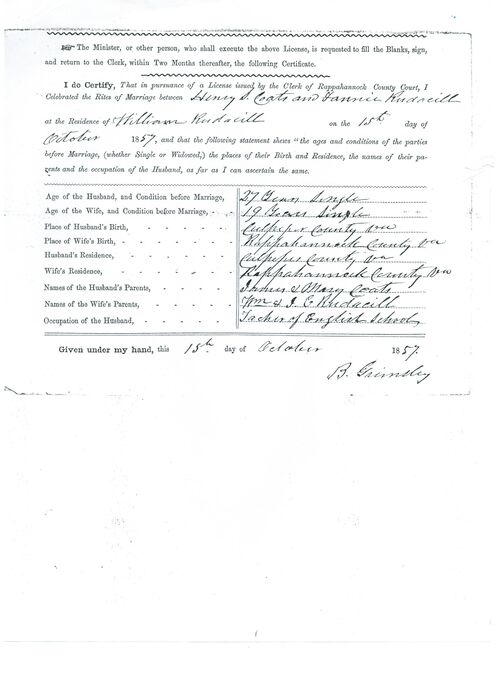 The Minister, or other person, who shall execute the above License, is requested to fill the Blanks, sign,
and return to the Clerk, within Two Months thereafter, the following Certificate.
I do Certify, That in pursuance of a License issued by the Clerk of Rappahannock County Court, I
Celebrated the Rites of Marriage between Henry S. Coats and Fannie Rudacill
at the Residence of William Rudacill on the 15th day of
October 1857, and that the following statement shews "the ages and conditions of the parties
before Marriage, (whether Single or Widowed,) the places of their Birth and Residence, the names of their pa-
rents and the occupation of the Husband, as far as I can ascertain the same.
Age of the Husband, and Condition before Marriage, 27 Years Single
Age of the Wife, and Condition before Marriage, - - 19 Years Single
Place of Husband's Birth, - - - - - Culpeper County Va
Place of Wife's Birth, - - - - - Rappahannock County Va
Husband's Residence, - - - - - Culpeper County Va
Wife's Residence, - - - - - Rappahannock County Va
Names of the Husband's Parents, - - - - James & Mary Coats
Names of the Wife's Parents, - - - - Wm & J. E. Rudacill
Occupation of the Husband, - - - - Tacher of English School
Given under my hand, this 15th day of October 1857.
B. Grimsley